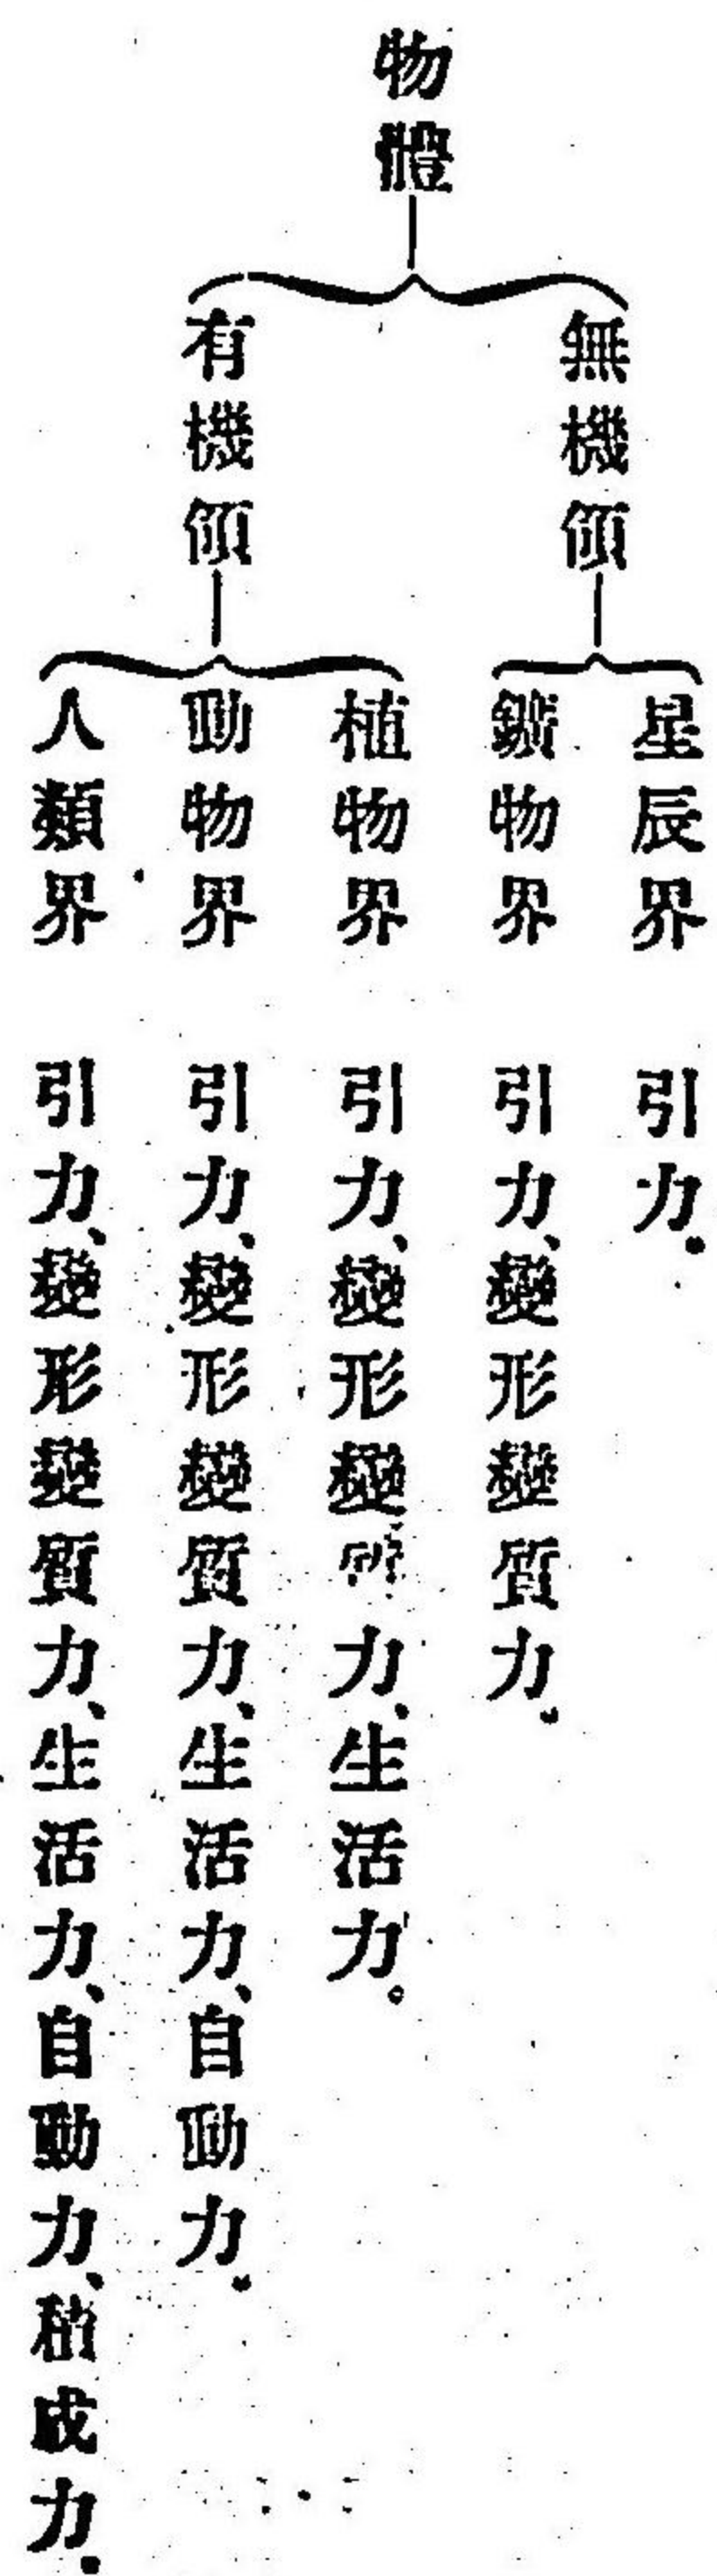 物體
無機領
有機領
星辰界 引力。
鑛物界 引力、變形變質力。
植物界 引力、變形變力、生活力。
動物界 引力、變形變質力、生活力、自動力。
人類界 引力、變形變質力、生活力、自動力、積成力。